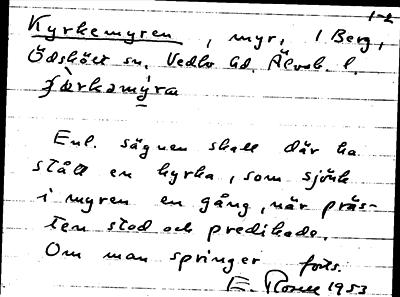 1-2
Kyrkemyren, myr, 1 Berg,
Ödskölt sn. Vedbo hd. Älvsb. l.
Enl. sägnen skall där ha
stått en kyrka, som sjönk
i myren en gång, när präs-
ten stod och predikade.
Om man springer forts.
E. 1953